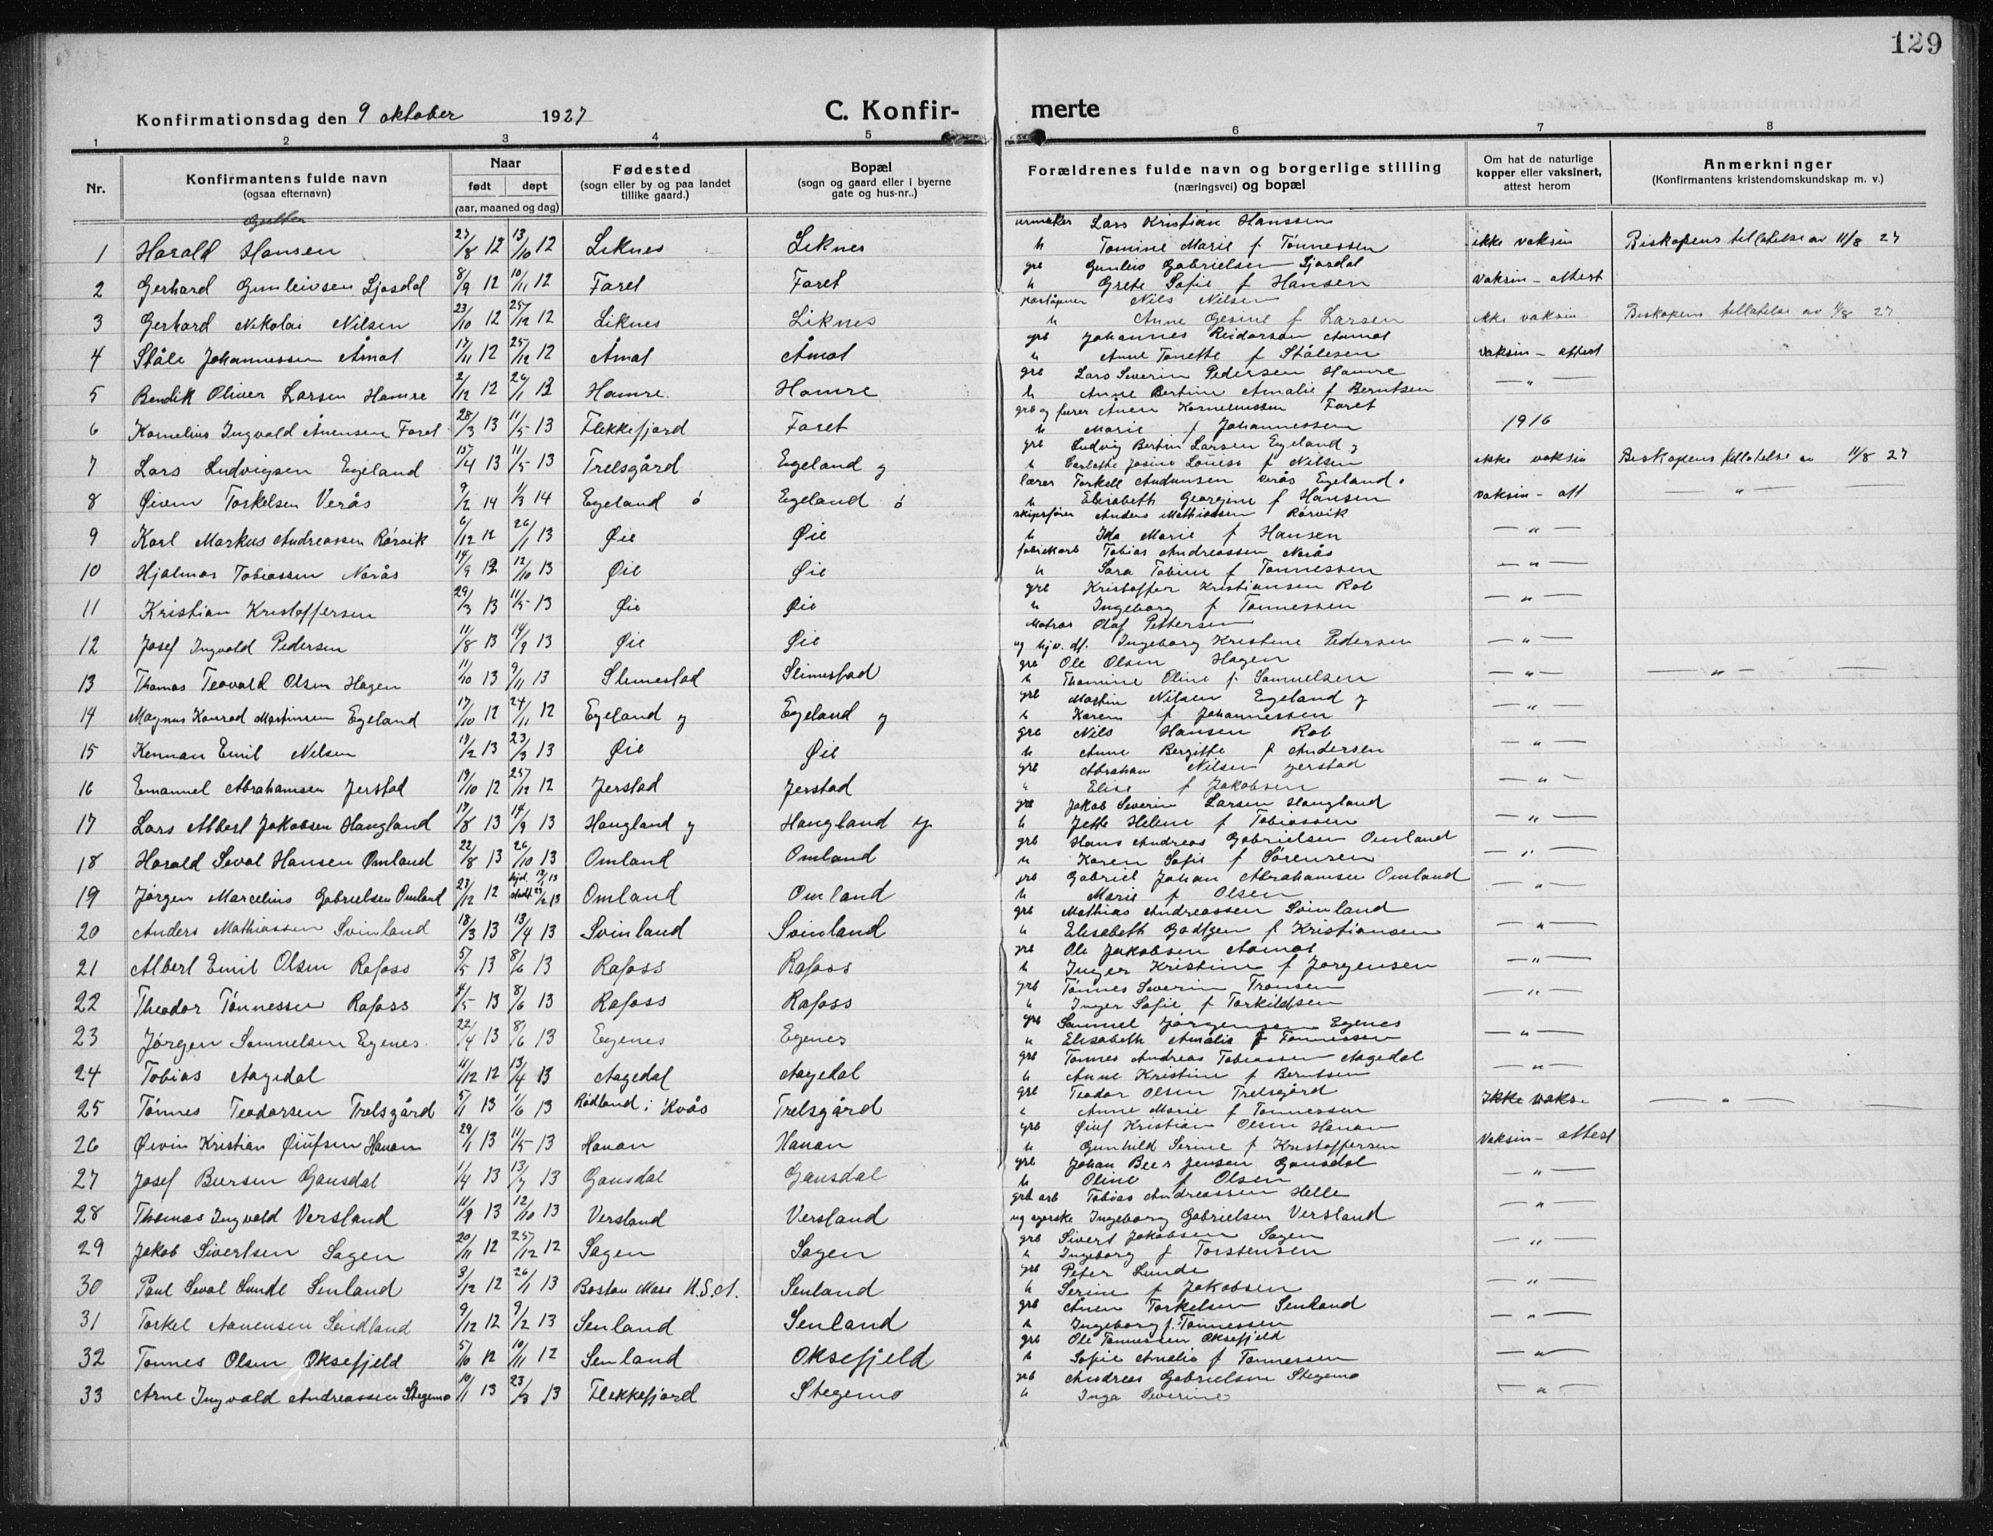 129
Konfirmationsdag den 9 oktober 1927 C. Konfir- merte
1 2 3 4 5 6 7 8
Nr. Konfirmantens fulde navn (ogsaa efternavn) Naar født døpt (aar, maaned og dag) Fødested (sogn eller by og paa landet tillike gaard.) Bopæl (sogn og gaard eller i byerne gate og hus-nr.) Forældrenes fulde navn og borgerlige stilling (næringsvei) og bopæl Om hat de naturlige kopper eller vaksinert, attest herom Anmerkninger (Konfirmantens kristendomskundskap m. v.)
urmaker Lars Kristian Hanssen
1 Harald Hansen 27/8 12 13/10 12 Liknes Liknes u Tomine Marie f Tønnessen ikke vaksin Biskopens tillatelse av 11/8 27
grb Gunleiv Gabrielsen Ljosdal
2 Gerhard Gunleivsen Ljosdal 8/9 12 10/11 12 Faret Faret u Grete Sofie f Hansen vaksin - attest
Nils Nilsen
3 Gerhard Nikolai Nilsen 23/10 12 25/12 12 Liknes Liknes u Anne Gesine f Larsen ikke vaksin Biskopens tillatelse av 11/8 27
grb Johannes Reidarson Aamot
4 Ståle Johannessen Åmot 17/11 12 25/12 12 Åmot Åmot u Anne Tonette f Stålesen vaksin - attest
grb Lars Severin Pedersen Hamre
5 Bendik Oliver Larsen Hamre 2/12 12 26/1 13 Hamre Hamre u Anne Bertine Amalie f Berntsen — " —
grb og fører Ånen Kornelinssen Faret
6 Kornelius Ingvald Ånensen Faret 28/3 13 11/5 13 Flekkefjord Faret u Marie f Johannessen 1916
grb Ludvig Bertin Larsen Egeland y
7 Lars Ludvigsen Egeland 15/4 13 11/5 13 Trelsgård Egeland y u Carlotte Josine Lovise f Nilsen ikke vaksin Biskopens tillatelse av 11/8 27
lærer Torkell Andunsen Verås Egeland
8 Øivin Torkelsen Verås 9/2 14 1/3 14 Egeland ö Egeland ö u Elisabeth Georgine f Hansen vaksin - att — " —
skipsfører Anders Mathiassen Rørvik
9 Karl Markus Andreassen Rørvik 6/12 12 26/1 13 Øie Øie u Ida Marie f Hansen — " —
Tobias Andreassen Narås
10 Hjalmar Tobiassen Narås 14/9 13 12/10 13 Øie Øie u Sara Tobine f Tønnessen — " —
grb Kristoffer Kristiansen Rob
11 Kristian Kristoffersen 29/3 13 11/5 13 Øie Øie u Ingeborg f Tønnessen — " —
Matros Olaf Pettersen
12 Josef Ingvald Pedersen 11/8 13 14/9 13 Øie Øie ug hjv. df. Ingeborg Kristine Pedersen — " —
grb Ole Olsen Hagen
13 Thomas Teovald Olsen Hagen 11/10 13 9/11 13 Slimestad Slimestad u Thomine Oline f Samuelsen — " — — " —
grb Martin Nilsen Egeland y
14 Magnus Konrad Martinsen Egeland 17/10 12 24/11 12 Egeland y Egeland y u Karen f Johannessen — " —
grb Nils Hansen Rob
15 Kennan Emil Nilsen 19/2 13 23/3 13 Øie Øie u Anne Bergitte f Andersen — " —
grb Abraham Nilsen Jerstad
16 Emanuel Abrahamsen Jerstad 19/10 12 25/12 12 Jerstad Jerstad u Elise f Jakobsen — " —
grb Jakob Severin Larsen Haugland
17 Lars Albert Jakobsen Haugland 17/8 13 14/9 13 Haugland y Haugland y u Jette Helene f Tobiassen — " —
grb Hans Andreas Gabrielsen Omland
18 Harald Seval Hansen Omland 22/8 13 26/10 13 Omland Omland u Karen Sofie f Sørensen — " —
grb Gabriel Johan Abrahamsen Omland
19 Jørgen Marcelius Gabrielsen Omland 27/12 12 hjd. 12/1 13 23/2 13 Omland Omland u Marie f Olsen — " —
grb Mathias Andreassen Svinland
20 Anders Mathiassen Svinland 18/3 13 13/4 13 Svinland Svinland u Elisabeth f Kristiansen — " —
grb Ole Jakobsen Aamot
21 Albert Emil Olsen Rafoss 5/5 13 8/6 13 Rafoss Rafoss u Inger Kristine f Jørgensen — " —
grb Tønnes Severin Tronsen
22 Theodor Tønnessen Rafoss 4/5 13 8/6 13 Rafoss Rafoss u Inger Sofie f Torkildsen — " —
grb Samuel Jørgensen Egenes
23 Jørgen Samuelsen Egenes 22/4 13 8/6 13 Egenes Egenes u Elisabeth Amalia f Tønnessen — " —
grb Tønnes Andreas Tobiassen Aagedal
24 Tobias Aagedal 11/12 12 13/4 13 Aagedal Aagedal u Anne Kristine f Berntsen — " —
grb Teodor Olsen Trelsgård
25 Tønnes Teodorsen Trelsgård 5/1 13 1/6 13 Rødland i Kvås Trelsgård u Anne Marie f Tønnessen Ikke vaks. — " —
grb Øiuf Kristian Olsen Hanan
26 Øivin Kristian Øiufsen Hanan 29/1 13 11/5 13 Hanan Hanan u Gunhild Serine f Kristoffersen vaksin - attest
grb Johan Beer Jensen Gausdal
27 Josef Beersen Gausdal 1/4 13 13/7 13 Gausdal Gausdal u Oline f Olsen — " —
grb arb Tobias Andreassen Helle
28 Thomas Ingvald Versland 11/9 13 12/10 13 Versland Versland ug Ingeborg Gabrielsen Versland — " —
grb Sivert Jakobsen Sagen
29 Jakob Sivertsen Sagen 20/11 12 25/12 12 Sagen Sagen u Ingeborg f Torstensen — " —
grb Peter Lunde
30 Paul Seval Lunde Senland 3/12 12 26/1 13 Boston Mass U.S.A. Senland u Serine f Jakobsen — " —
grb Anen Torkelsen Senland
31 Torkel Aanensen Sendland 9/12 12 9/2 13 Senland Senland u Ingeborg f. Tønnessen — " —
grb Ole Tønnessen Oksefjeld
32 Tønnes Olsen Oksefjeld 5/10 12 10/11 12 Senland Oksefjeld u Sofie Amalia f Tønnessen — " —
grb Andreas Gabrielsen Stegemo
33 Arne Ingvald Andreassen Stegemo 10/1 13 23/3 13 Flekkefjord Stegemo u Inga Severine — " —